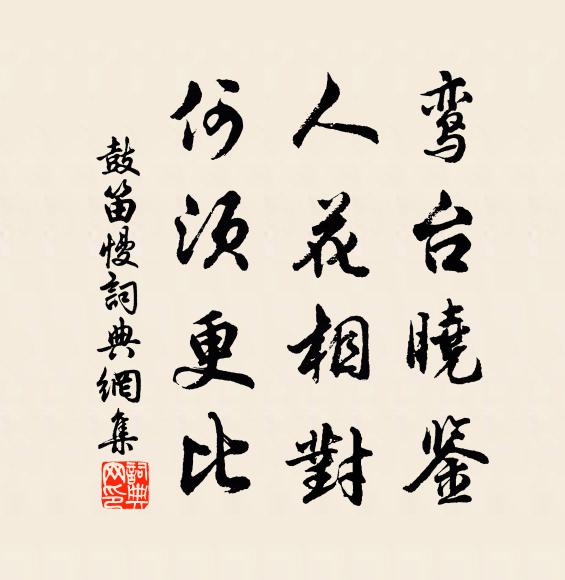 鸾台曉鉴
人花相對
何須更比
鼓笛慢詞典網集
詞典网印